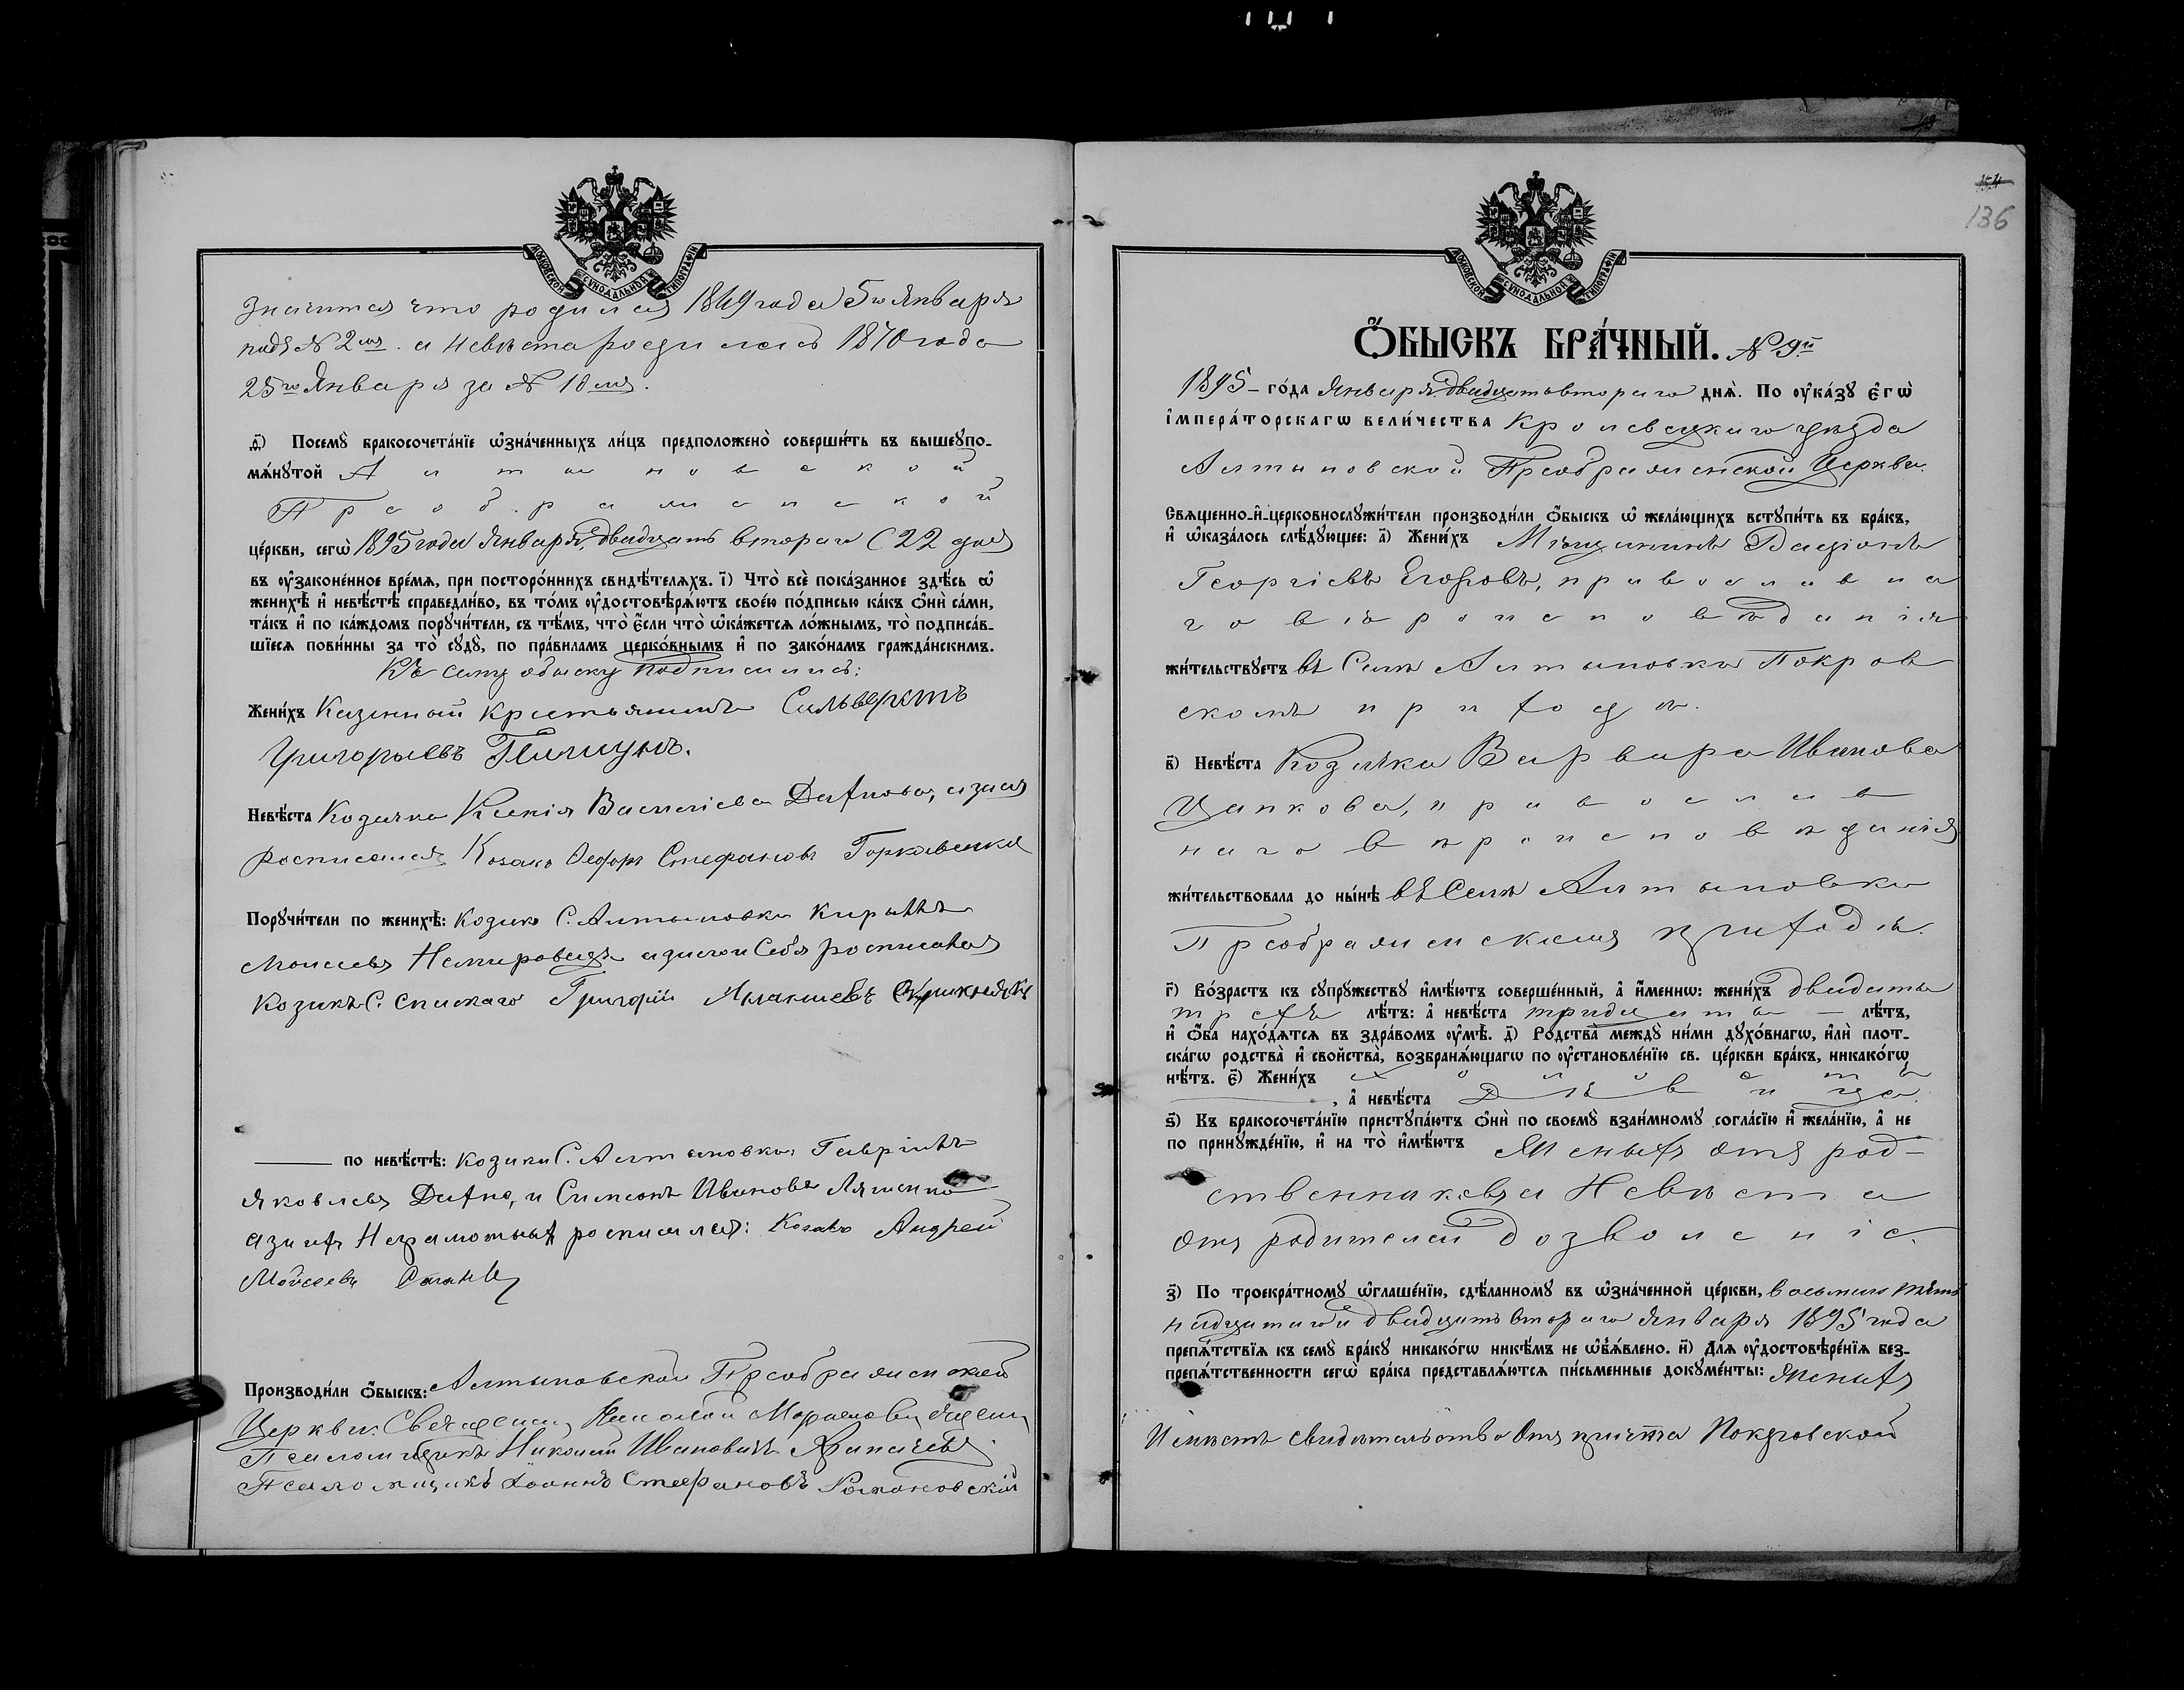 МОСКОВСКОЙ СѴНОДАЛЬНОЙ ТИПОГРАФІИ
Значится что родился 1869 года 5го Января
подъ № 2мъ. а Невѣста родилась 1870 года
25го Января за № 18мъ.
д҃і) Посемꙋ̀ бракосочета́нїе ѡ҆зна́ченныхъ ли́цъ предположено̀ соверши́ть въ вышеꙋпо-
мѧ́нꙋтой Алтыновской
Преображенской
це́ркви, сегѡ̀ 1895 года Января, двадцать втораго (22 дня
въ ѹ҆законе́нное вре́мѧ, при посторо́ннихъ свидѣ́телѧхъ. і҃) Что̀ всѐ пока́занное здѣ́сь ѡ҆
женихѣ̀ и҆ невѣ́стѣ справедли́во, въ то́мъ ѹ҆достовѣрѧ́ютъ свое́ю по́дписью ка́къ ѻ҆нѝ са́ми,
та́къ и҆ по ка́ждомъ порꙋчи́тели, съ тѣ́мъ, что̀ є҆́сли что̀ ѡ҆ка́жетсѧ ло́жнымъ, то̀ подписа́в-
шїесѧ пови́нны за то̀ сꙋдꙋ̀, по пра́виламъ церко́внымъ и҆ по зако́намъ гражда́нскимъ.
Къ сему обыску подписались:
Жени́хъ Казенный крестьянинъ Сильверстъ
Григорьевъ
Невѣ́ста Козачка Ксенія Васильева Дахнова, а за нея
росписался Козакъ Ѳеодоръ Стефановъ Горкавенко
Порꙋчи́тели по женихѣ̀: Козакъ С. Алтыновки Кирыллъ
Моисеевъ Немировецъ а за него и Себя росписався
Козакъ С. Спискаго Григорій
по невѣ́стѣ: козаки С. Алтыновки, Гавріилъ
Яковлевъ Дахно, и Симеонъ Ивановъ Ляшенко
а за ихъ Неграмотныхъ росписался: Козакъ Андрей
Моисеевъ
Производи́ли ѻ҆́быскъ: Алтыновской Преображенской
Церкви: Священникъ Николай
Псаломщикъ Николай Ивановичъ
Псаломщикъ Іоаннъ Стефановъ Романовскій
154
136
МОСКОВСКОЙ СѴНОДАЛЬНОЙ ТИПОГРАФІИ
Ѻ҆́БЫСКЪ БРА́ЧНЫЙ. № 9й
1895 – го́да Января двадцать втораго днѧ̀. По ѹ҆ка́зꙋ є҆гѡ̀
і҆мпера́торскагѡ вели́чества Кролевецкаго уѣзда
Алтыновской Преображенской Церкви.
Свѧще́нно-и҆-церковнослꙋжи́тели производи́ли ѻ҆́быскъ ѡ҆ жела́ющихъ встꙋпи́ть въ бра́къ,
и҆ ѡ҆каза́лось слѣ́дꙋющее: а҃) Жени́хъ Мѣщанинъ Родіонъ
Георгіевъ Егоровъ, православна
го вѣроисповѣданія
жи́тельствꙋетъ въ Селѣ Алтыновки Покров
скомъ приходѣ.
в҃) Невѣ́ста Козачка Варвара Иванова
Цапкова, православ
наго вѣроисповѣданія
жи́тельствовала до ны́нѣ въ Селѣ Алтыновки
Преображенскомъ приходѣ.
г҃) Во́зрастъ къ сꙋпрꙋ́жествꙋ и҆мѣ́ютъ соверше́нный, а҆ и҆́меннѡ: жени́хъ двадцати
трехъ лѣ́тъ: а҆ невѣ́ста тридцати – лѣ́тъ,
и҆ ѻ҆́ба нахо́дѧтсѧ въ здра́вомъ ѹ҆мѣ̀. д҃) Родства̀ междꙋ̀ ни́ми дꙋхо́внагѡ, и҆лѝ плот-
ска́гѡ родства̀ и҆ сво́йства̀, возбранѧ́ющагѡ по ѹ҆становле́нїю св. це́ркви бра́къ, никако́гѡ
нѣ́тъ. є҃) Жени́хъ холостъ
, а҆ невѣ́ста дѣвица.
ѕ҃) Къ бракосочета́нїю пристꙋпа́ютъ ѻ҆нѝ по своемꙋ̀ взаи́мномꙋ согла́сїю и҆ жела́нїю, а҆ не
по принꙋжде́нїю, и҆ на то̀ и҆мѣ́ютъ Женихъ отъ род-
ственниковъ а Невѣста
отъ родителей дозволеніе.
з҃) По троекра́тномꙋ ѡ҆глаше́нїю, сдѣ́ланномꙋ въ ѡ҆зна́ченной це́ркви, восьмаго пят
надцатаго и двадцать втораго Января 1895 года
препѧ́тствїѧ къ семꙋ̀ бра́кꙋ никако́гѡ никѣ́мъ не ѡ҆б̾ѧ́влено. и҃) Длѧ ѹ҆достовѣре́нїѧ без-
препѧ́тственности сегѡ̀ бра́ка представлѧ́ютсѧ пи́сьменные докꙋме́нты: Женихъ
Имѣетъ свидѣтельство Отъ причта Покровской